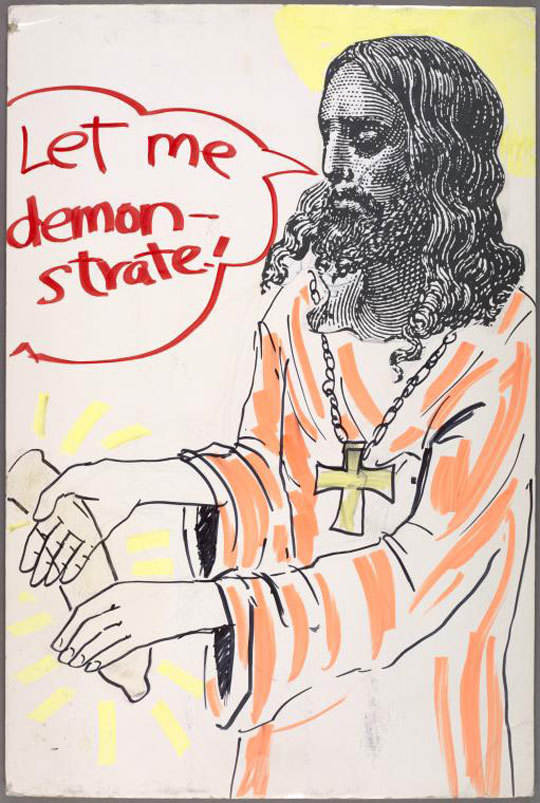 Let me
demon-
strate!